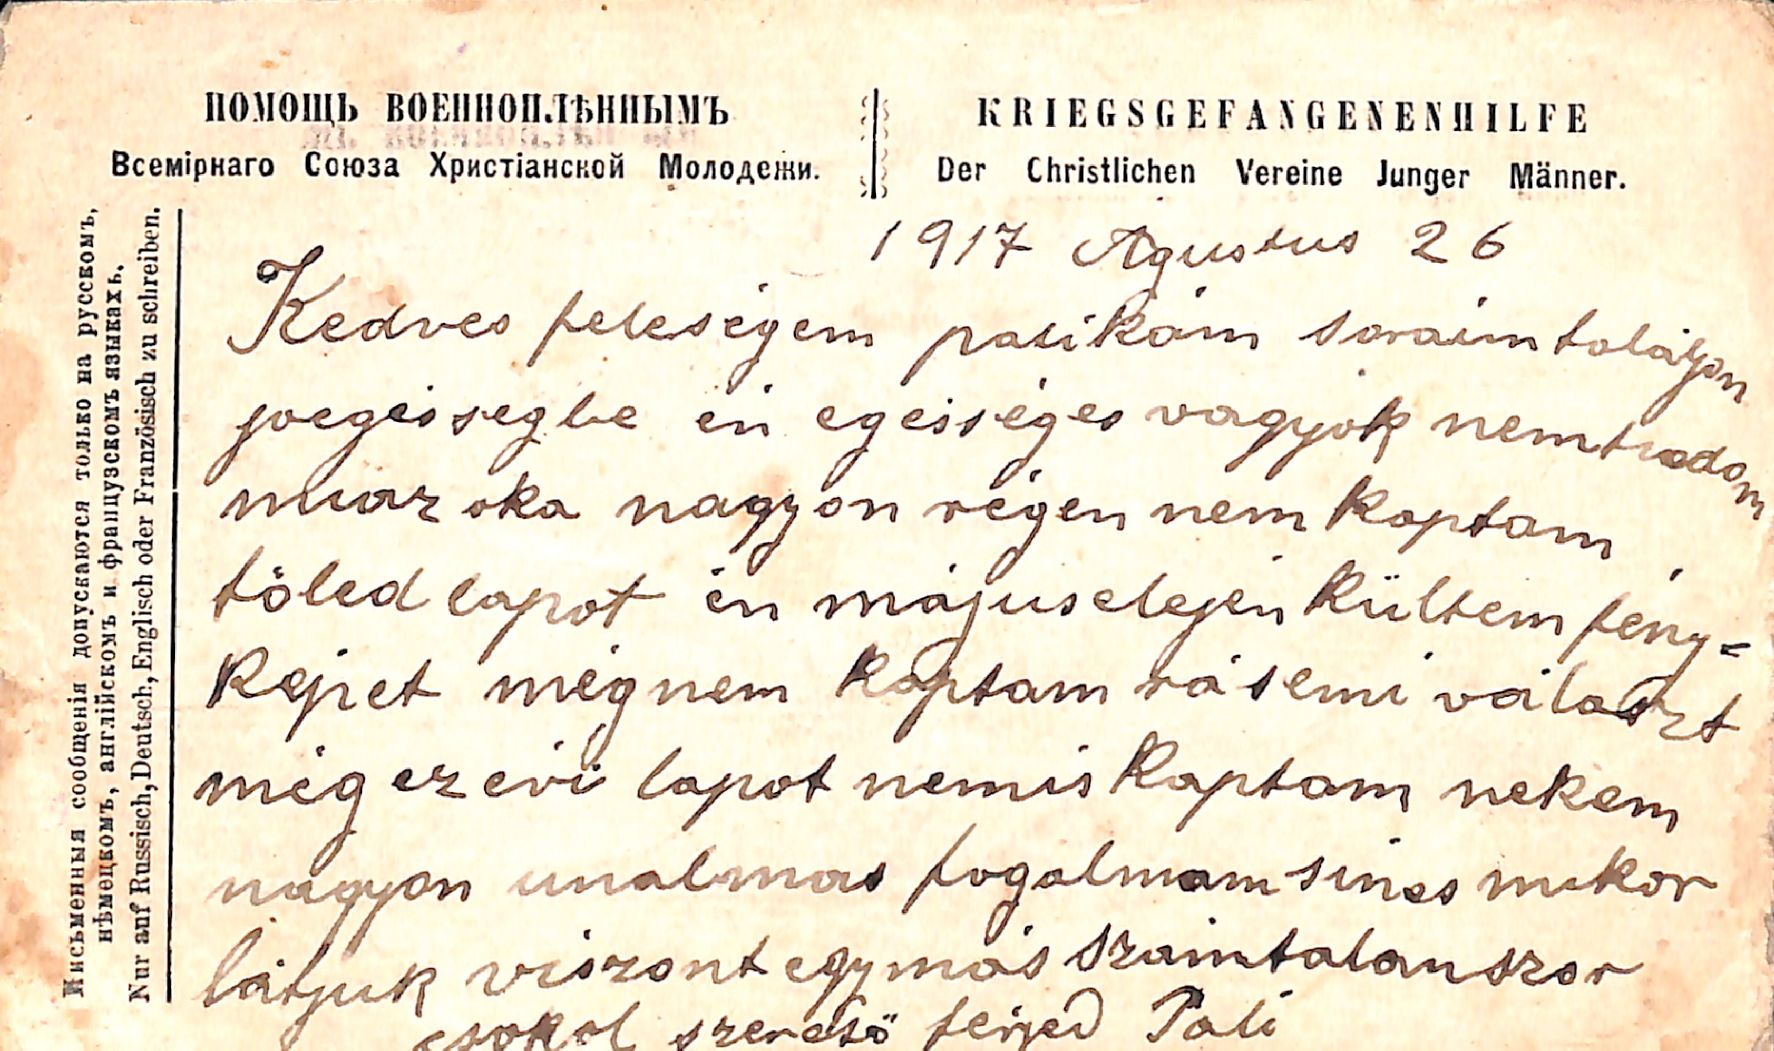 ПОМОЩЬ ВОЕННОПЛѢННЫМЪ
Всемірнаго Союза Христіанской Молодежи.
KRIEGSGEFANGENENHILFE
Der Christlichen Vereine Junger Männer.
Письменныя сообщенія допускаются только на русскомъ,
нѣмецкомъ, англійскомъ и французскомъ языкахъ.
Nur auf Russisch, Deutsch, Englisch oder Französisch zu schreiben.
1917 Agustus 26
Kedves feleségem palikám soraim toláljon
joegéssegbe én egésséges vagyok nemtudom
miaz oka nagyon régen nem kaptam
töled lapot én május elején kültem fény=
képet mégnem kaptam rá semi választ
még ez évi lapot nemis kaptam nekem
nagyon unalmas fogalmam sincs mikor
látjuk viszont egymás számtalanszor
csokol szeretö férjed Pali